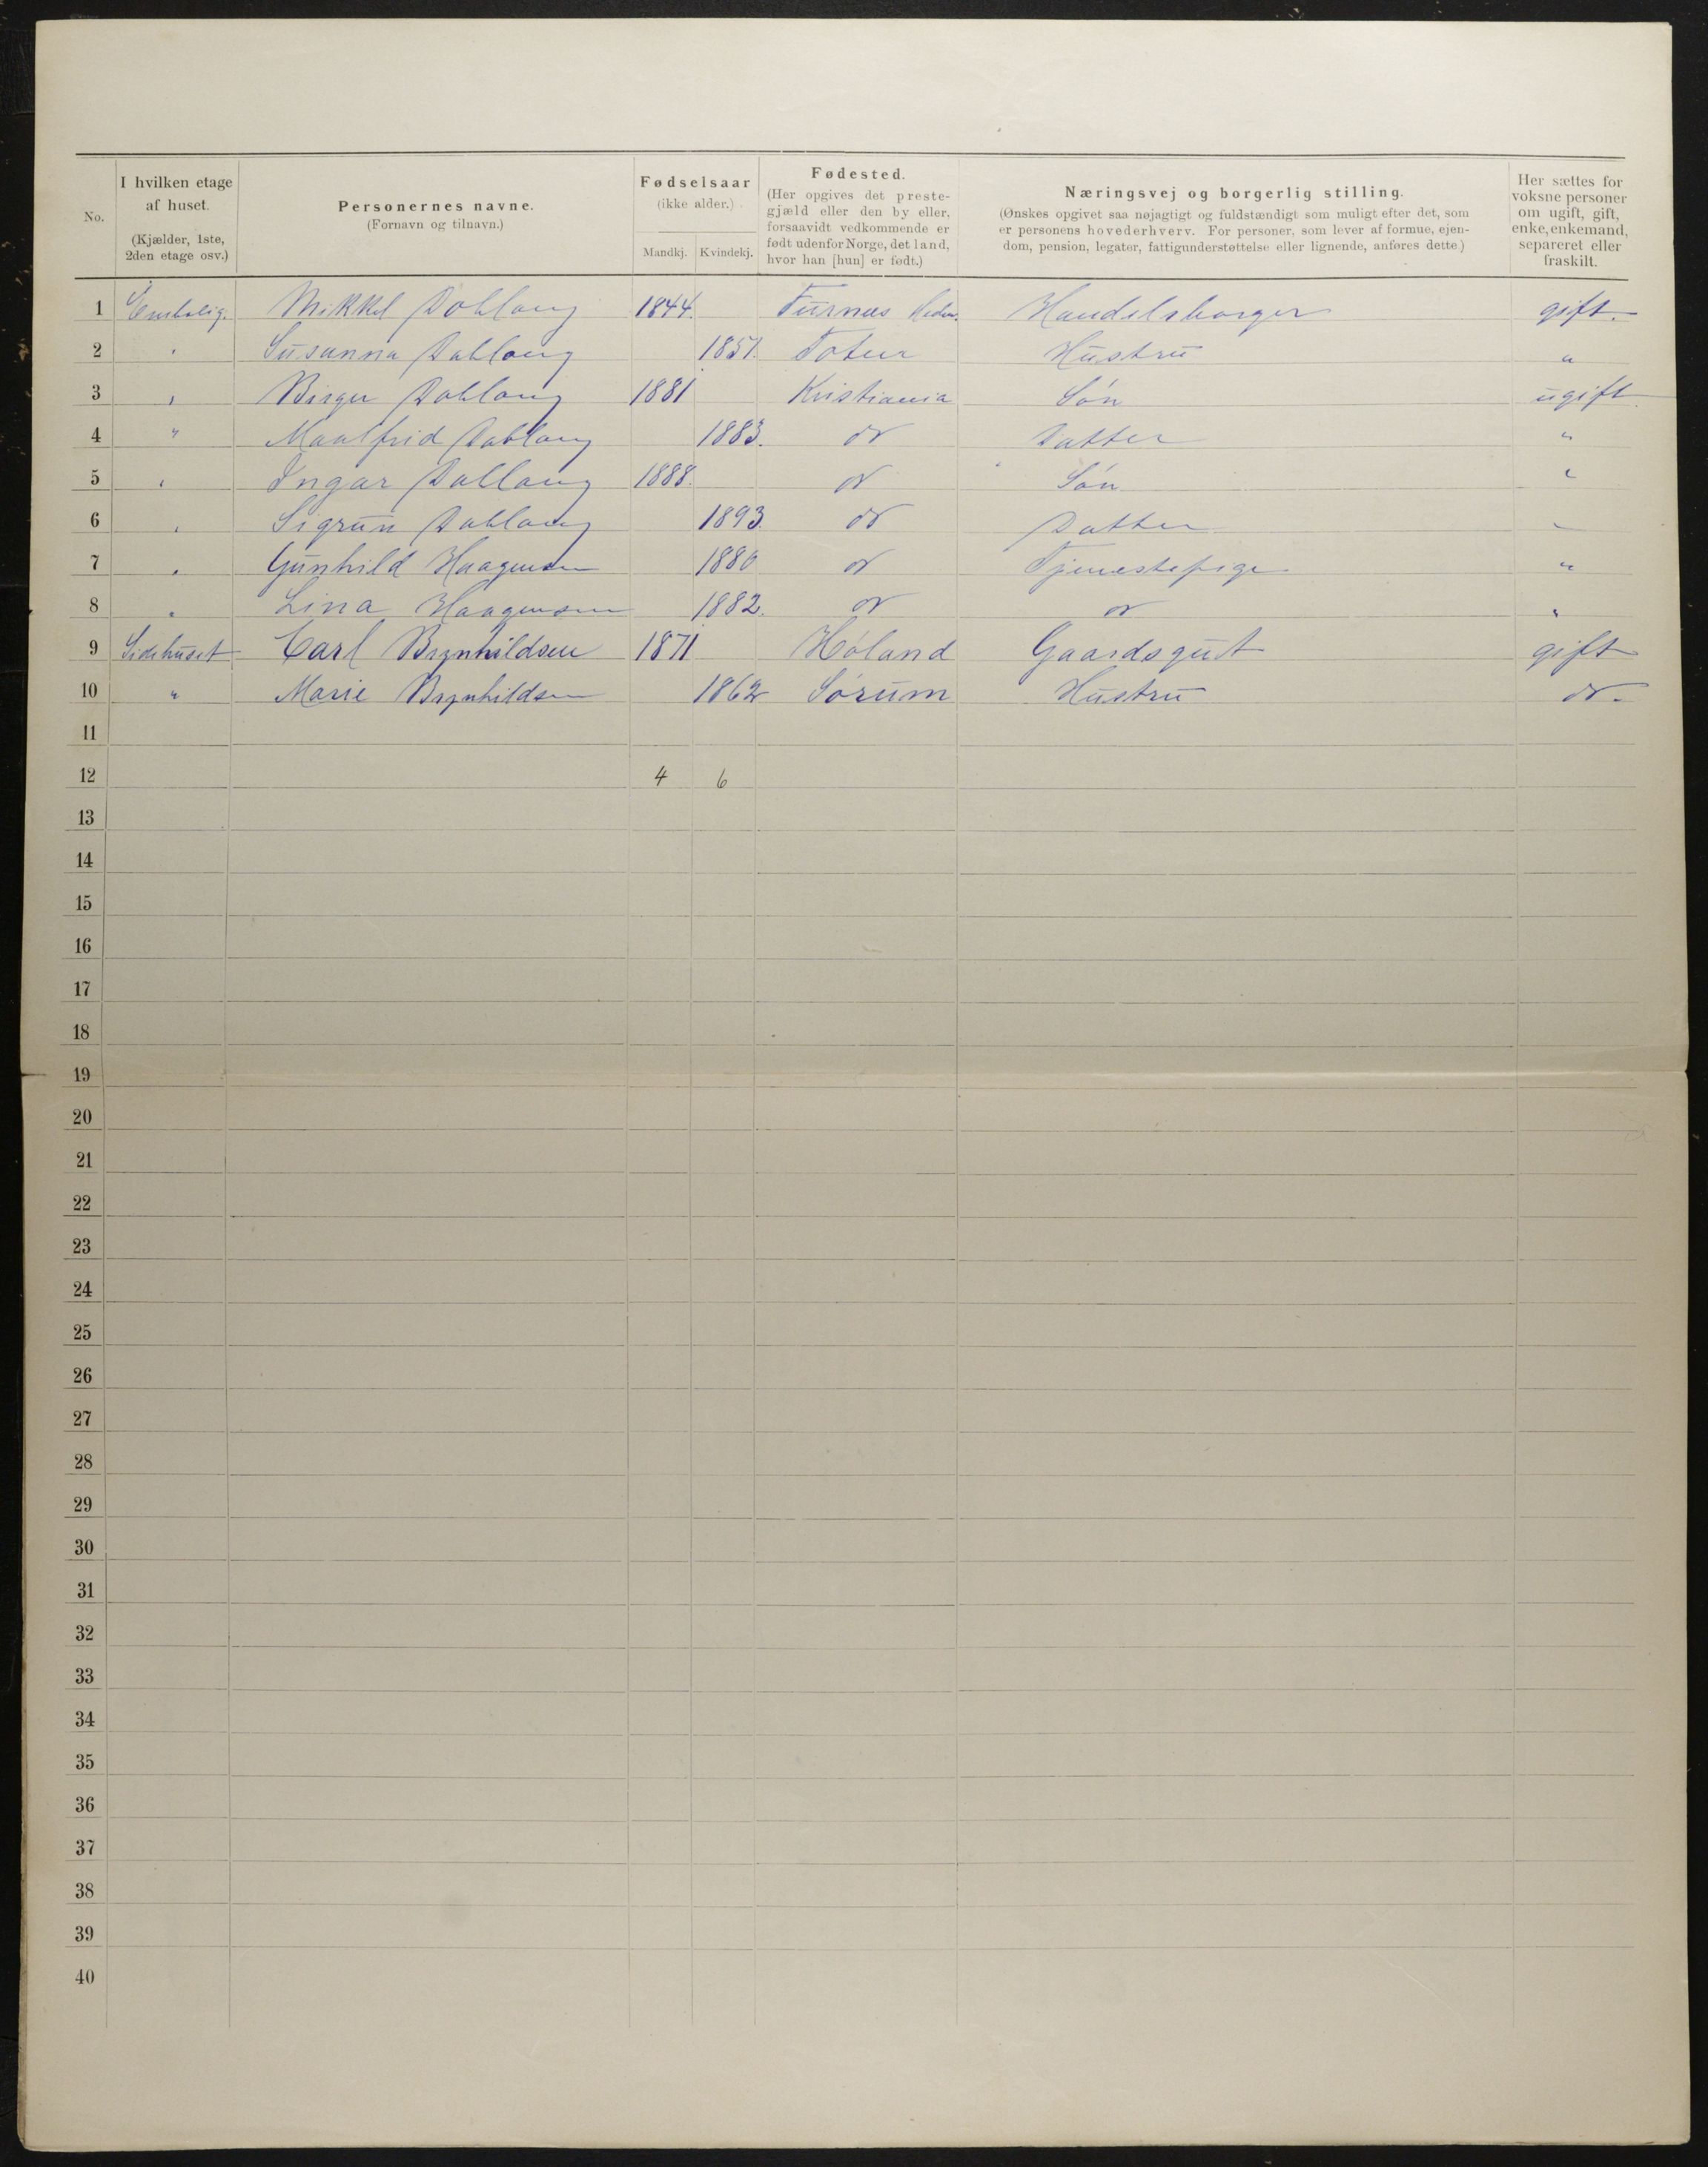 No.
I hvilken etage af huset. (Kjælder, 1ste, 2den etage osv.)
Personernes navne. (Fornavn og tilnavn.)
Fødselsaar (ikke alder.)
Mandkj. Kvindekj.
Fødested. (Her opgives det prestegjæld eller den by eller, forsaavidt vedkommende er født udenfor Norge, det land, hvor han [hun] er født.)
Næringsvej og borgerlig stilling. (Ønskes opgivet saa nøjagtigt og fuldstændigt som muligt efter det, som er personens hovederhverv. For personer, som lever af formue, ejendom, pension, legater, fattigunderstøttelse eller lignende, anføres dette.)
Her sættes for voksne personer om ugift, gift, enke, enkemand, separeret eller fraskilt.
1 Enebolig. Mikkel Dobloug 1844. Furnæs Hedm. Handelsborger gift.
2 " Susanna Dobloug 1851. Toten Hustru "
3 " Birger Dobloug 1881 Kristiania Søn ugift
4 " Maalfrid Dobloug 1883. do Datter "
5 " Ingar Dobloug 1888. do Søn "
6 " Sigrun Dobloug 1893. do Datter "
7 " Gunhild Haagensen 1880 do Tjenestepige "
8 " Lina Haagensen 1882. do do "
9 Sidehuset Carl Brynhildsen 1871 Høland Gaardsgut gift
10 " Marie Brynhildsen 1862 Sørum Hustru do.
11
12 4 6
13
14
15
16
17
18
19
20
21
22
23
24
25
26
27
28
29
30
31
32
33
34
35
36
37
38
39
40